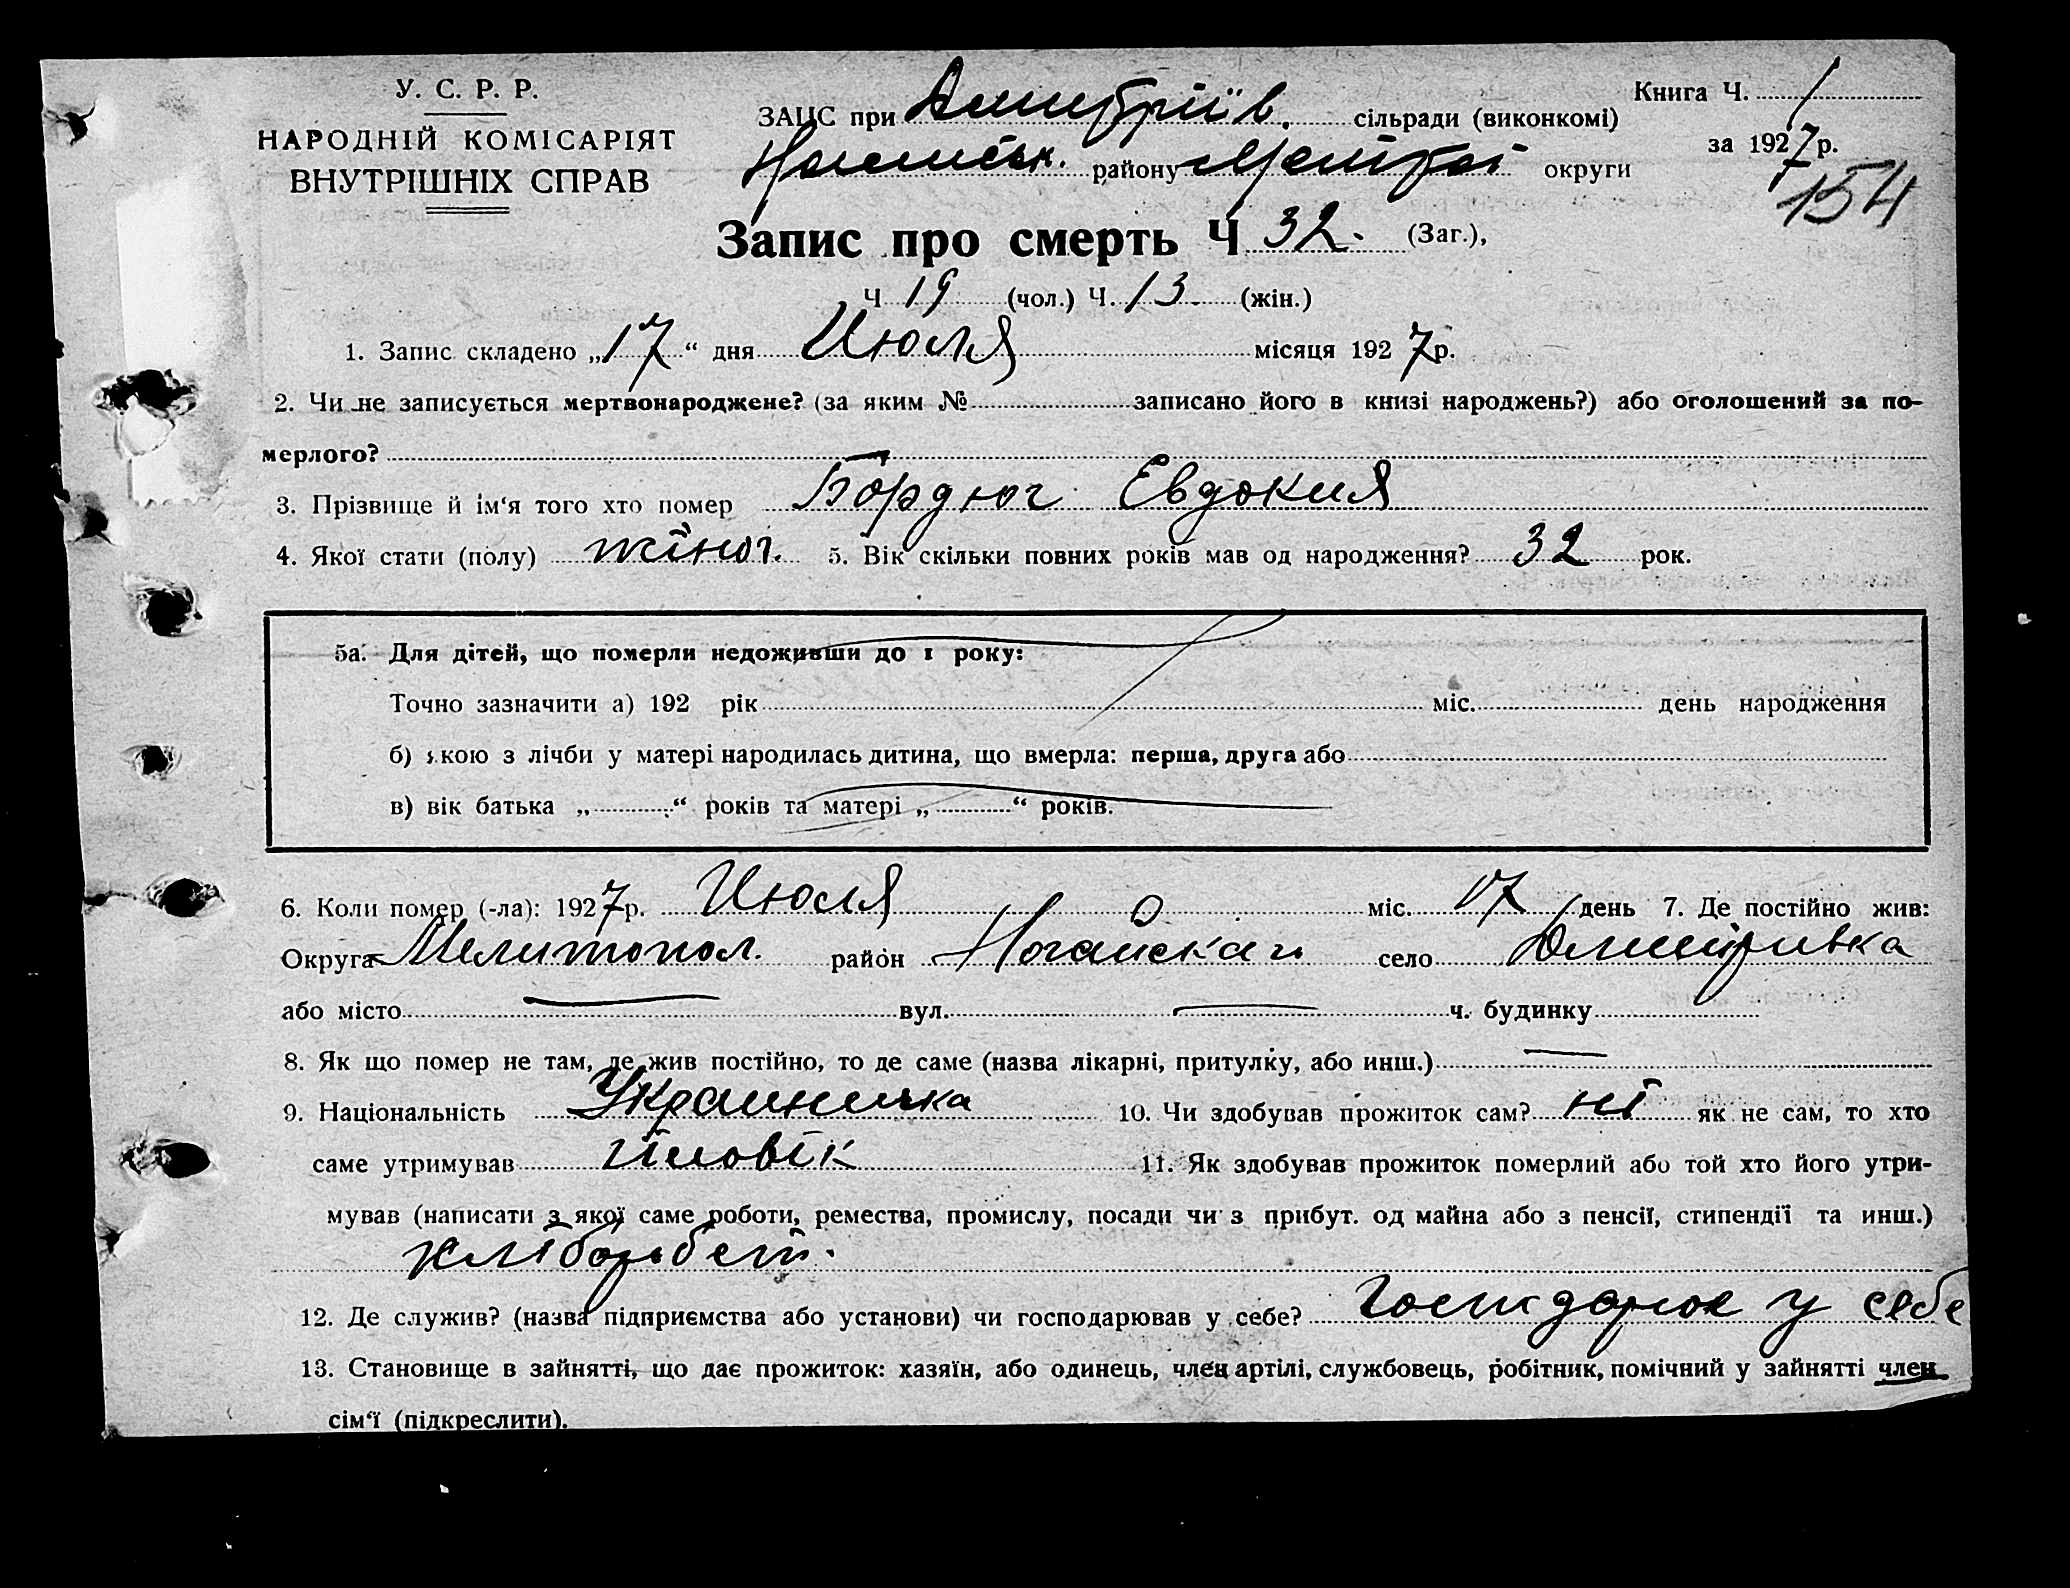 У. С. Р. Р.
НАРОДНІЙ КОМІСАРІЯТ
ВНУТРІШНІХ СПРАВ
ЗАЦС при Дмитріїв. сільради (виконкомі)
району округи
Книга Ч. 1
за 1927 р.
154
Запис про смерть Ч 32. (Заг.),
Ч 19 (чол.) Ч. 13 (жін.)
1. Запис складено „17“ дня Июля місяця 1927 р.
2. Чи не записується мертвонароджене? (за яким № записано його в книзі народжень?) або оголошений за по-
мерлого?
3. Прізвище й ім'я того хто помер Бордюг Евдокия
4. Якої стати (полу) жіноч. 5. Вік скільки повних років мав од народження? 32 рок.
5а. Для дітей, що померли недоживши до 1 року:
Точно зазначити а) 192 рік міс. день народження
б) якою з лічби у матері народилась дитина, що вмерла: перша, друга або
в) вік батька „ “ років та матері „ “ років.
6. Коли помер (-ла): 1927 р. Июля міс. 17 день 7. Де постійно жив:
Округа Мелитопол. район село Дмитрівка
або місто вул. ч. будинку
8. Як що помер не там, де жив постійно, то де саме (назва лікарні, притулку, або инш.)
9. Національність 10. Чи здобував прожиток сам? ні як не сам, то хто
саме утримував чіловік 11. Як здобував прожиток померлий або той хто його утри-
мував (написати з якої саме роботи, ремества, промислу, посади чи з прибут. од майна або з пенсії, стипендії та инш.)
12. Де служив? (назва підприємства або установи) чи господарював у себе? у себе
13. Становище в зайнятті, що дає прожиток: хазяїн, або одинець, член артілі, службовець, робітник, помічний у зайнятті член
сім'ї (підкреслити).